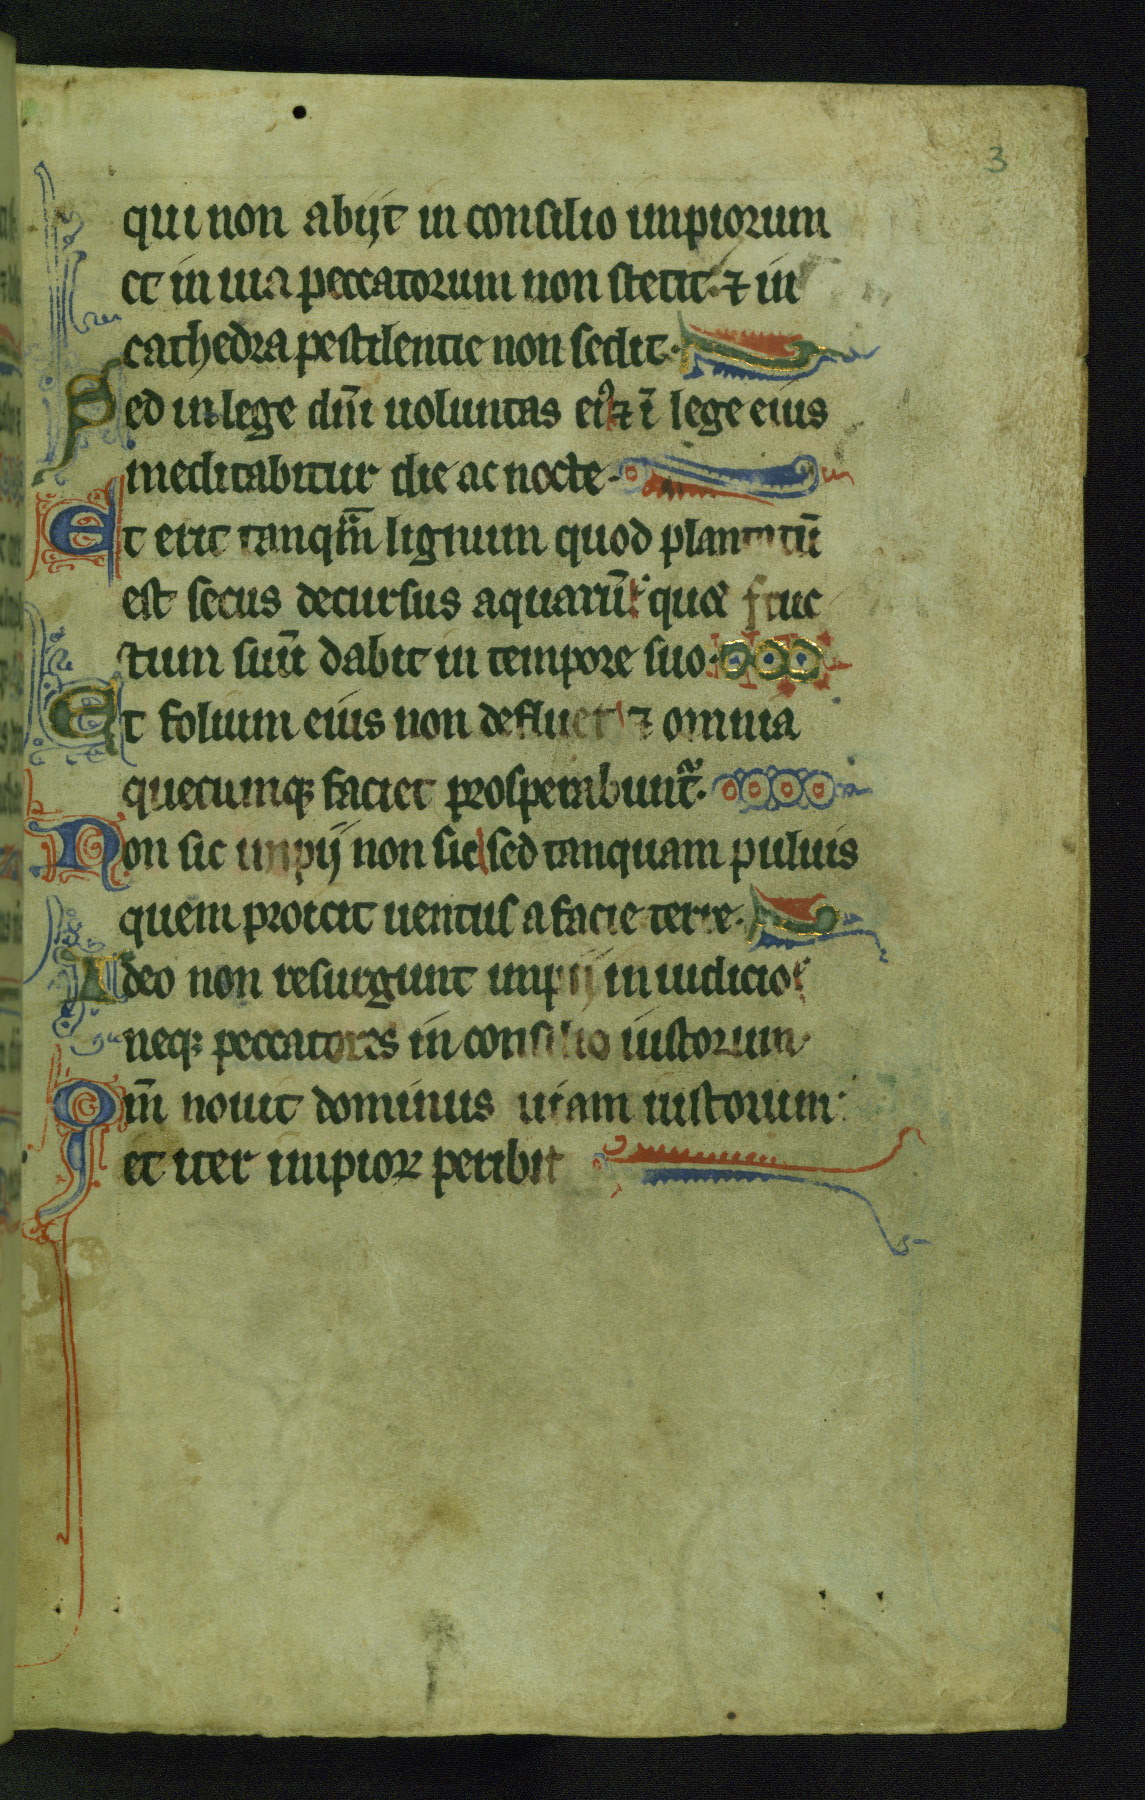 3
qui non abijt in consilio impiorum
et in uia peccatorum non stetit· ⁊ in
cathedra pestilentie non sedit·
Sed in lege dn̄i uoluntas eiꝰ ⁊ ī lege eius
meditabitur die ac nocte·
Et erit tanqm̄ lignum quod plantatū
est secus decursus aquarū quod fruc
tum suū dabit in tempore suo·
Et folium eius non defluet ⁊ omnia
quecumqꝫ faciet prosperabunt᷑·
Non sic impij non sic sed tanquam puluis
quem proicit uentus a facie terre·
Ideo non resurgunt impij in iudicio
neqꝫ peccatores in consilio iustorum·
Qm̄ nouit dominus uiam iustorum·
et iter impioꝝ peribit